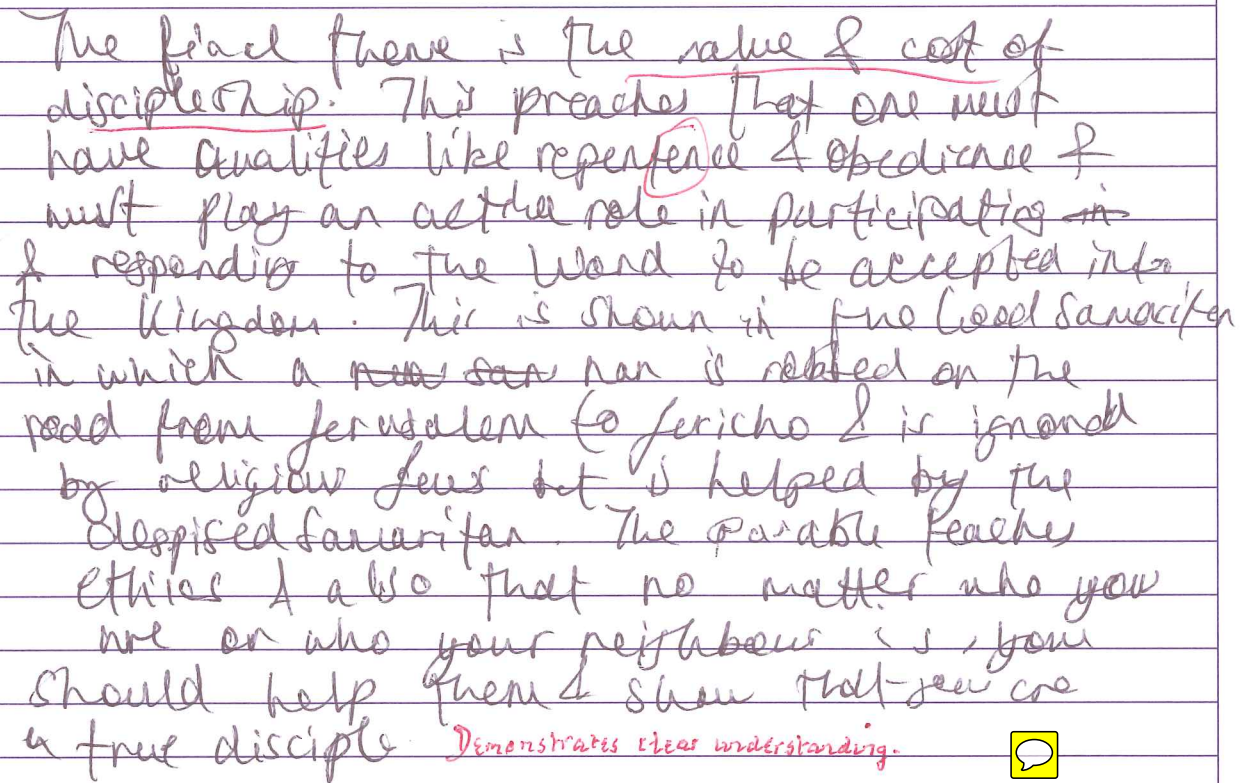 The final theme is the value & cost of
discipleship. This preaches that one must
have qualities like repentence & obedience &
must play an active role in participating in
& responding to the Word to be accepted into
the Kingdom. This is shown in the Good Samaritan
in which a man is robbed on the
road from Jerusalem to Jericho & is ignored
by religious Jews but is helped by the
despised Samaritan. The parable teaches
ethics & also that no matter who you
are or who your neighbour is, you
should help them & show that you are
a true disciple
Demonstrates clear understanding.